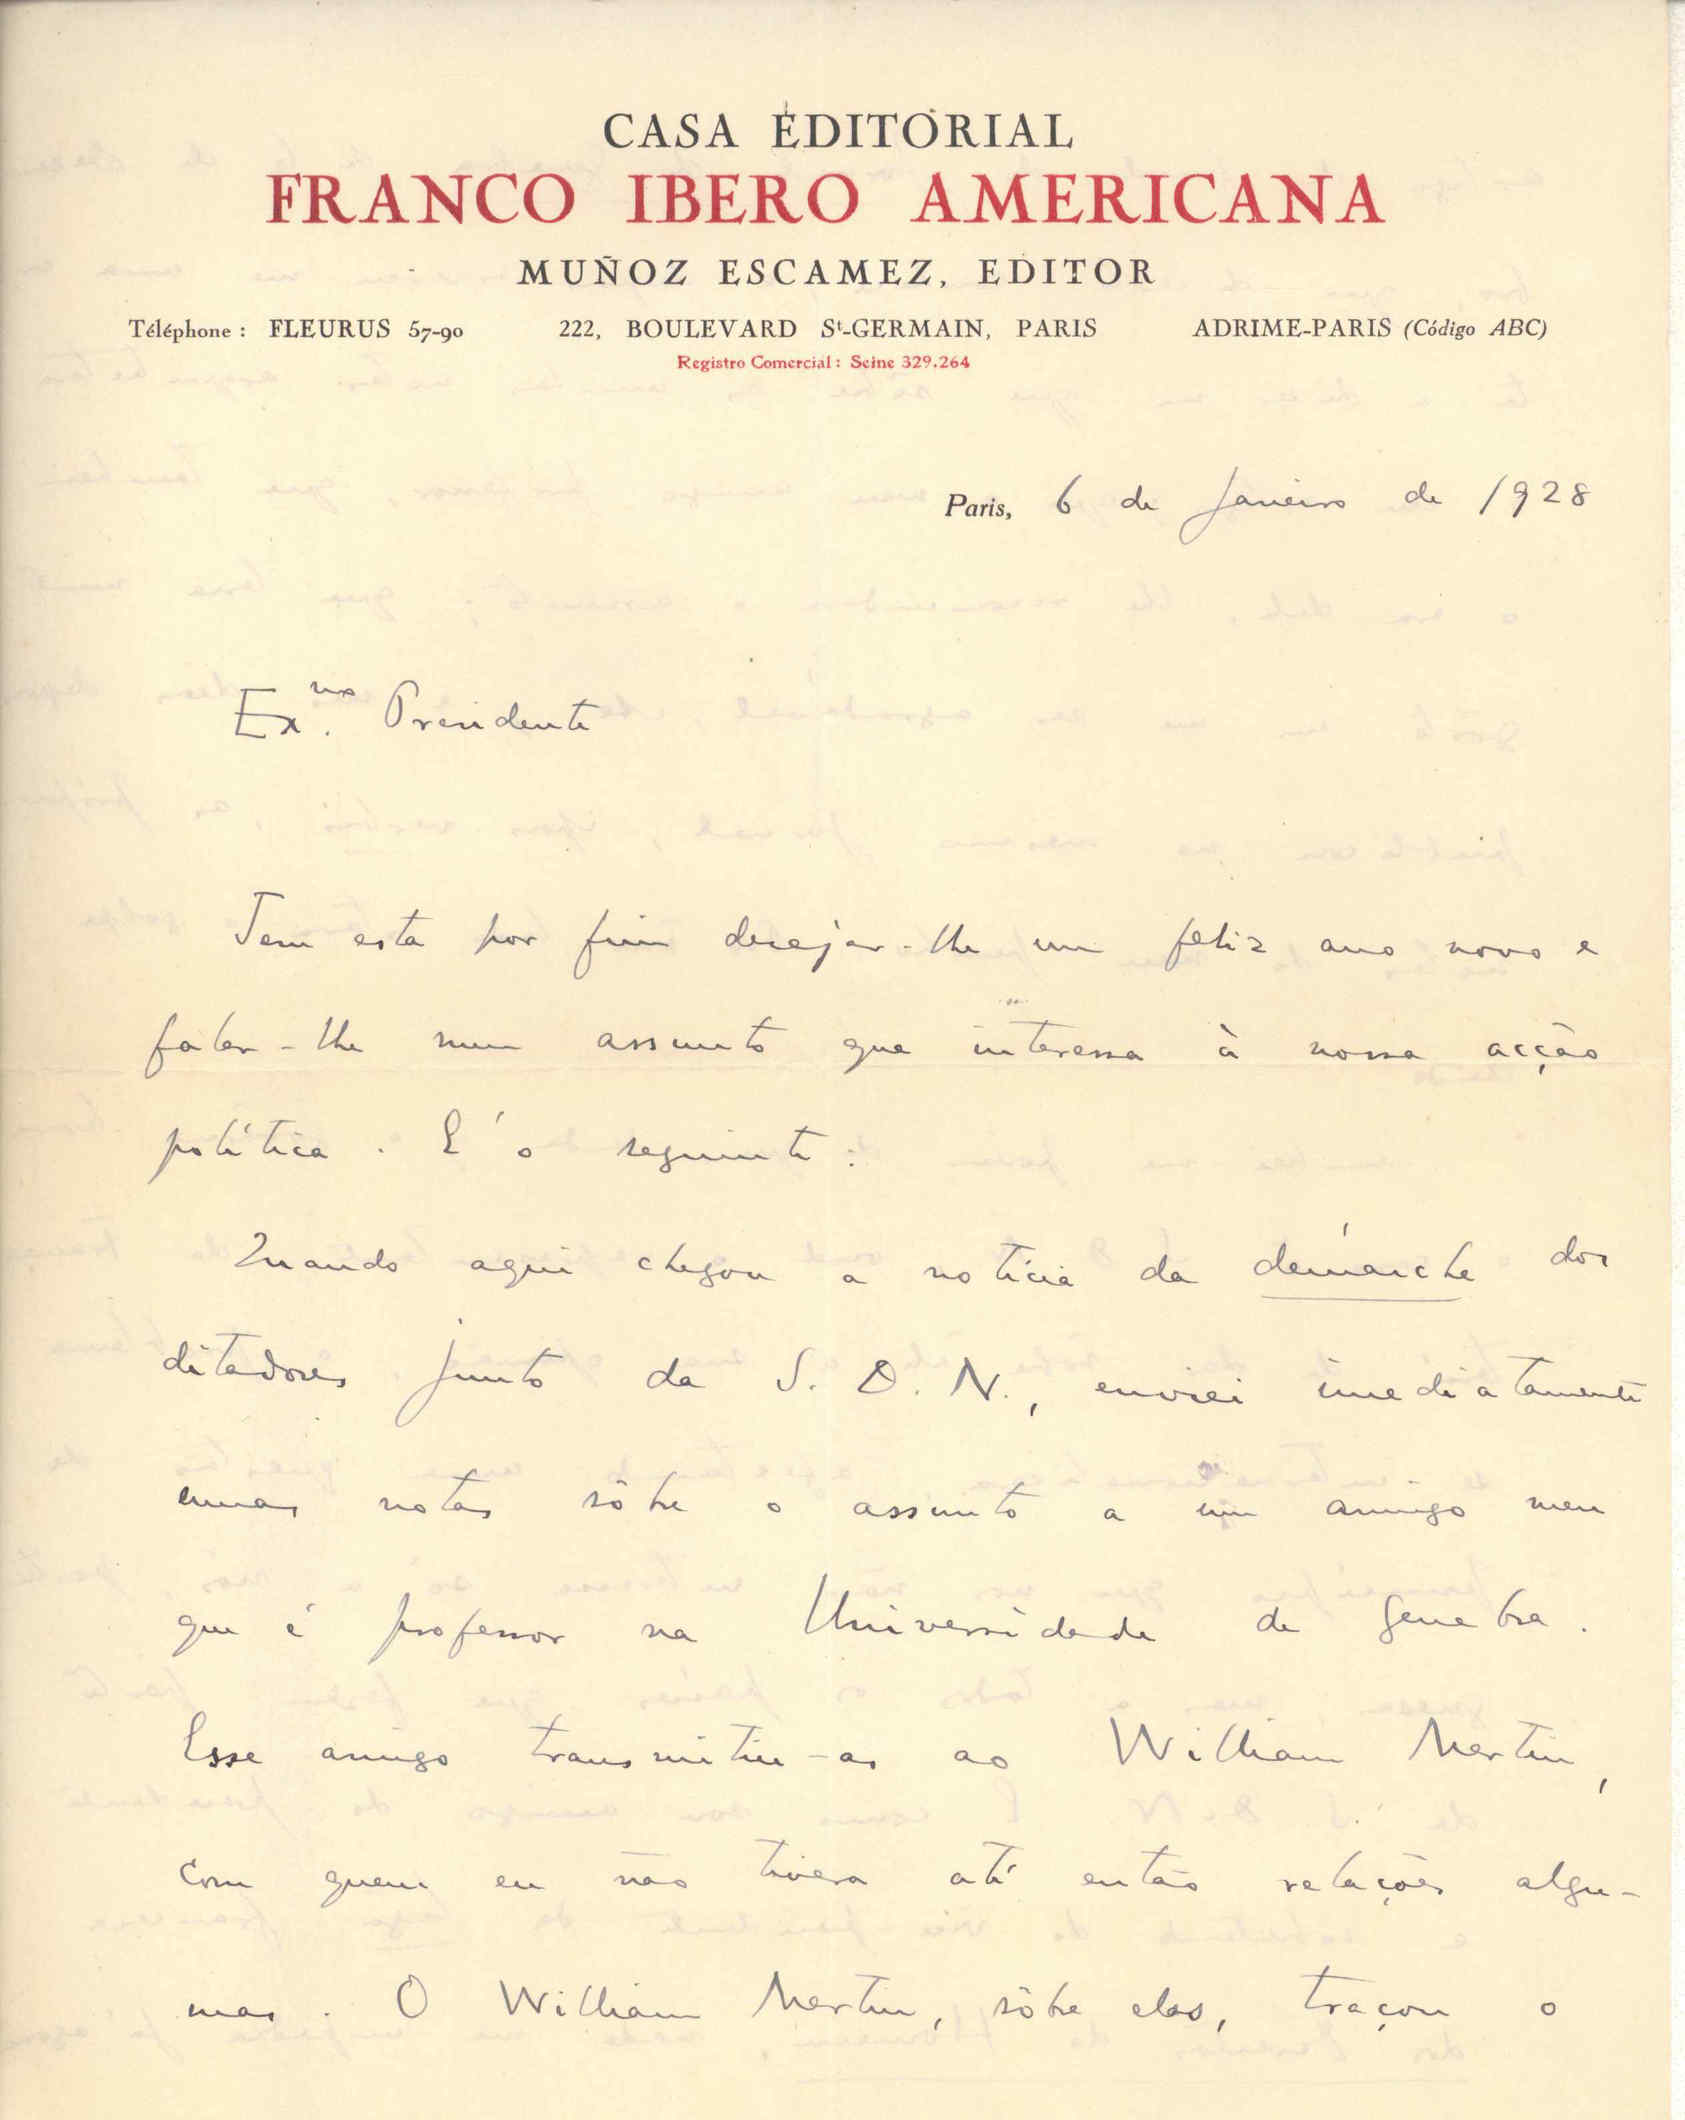 CASA EDITORIAL
FRANCO IBERO AMERICANA
MUÑOZ ESCAMEZ, EDITOR
Téléphone : FLEURUS 57-90 222, BOULEVARD St-GERMAIN, PARIS ADRIME-PARIS (Código ABC)
Registro Comercial : Seine 329.264
Paris, 6 de Janeiro de 1928
Exmo. Presidente
Tem esta por fim desejar-lhe um feliz ano novo e
falar-lhe num assunto que interessa à nossa acção
política. E' o seguinte:
Quando aqui chegou a notícia da démarche dos
ditadores junto da S. D. N., enviei imediatamente
umas notas sôbre o assunto a um amigo meu
que é professor na Universidade de Genebra.
Esse amigo transmitiu-as ao William Martin,
com quem eu não tivera até então relações algu-
mas. O William Martin, sôbre elas, traçou o